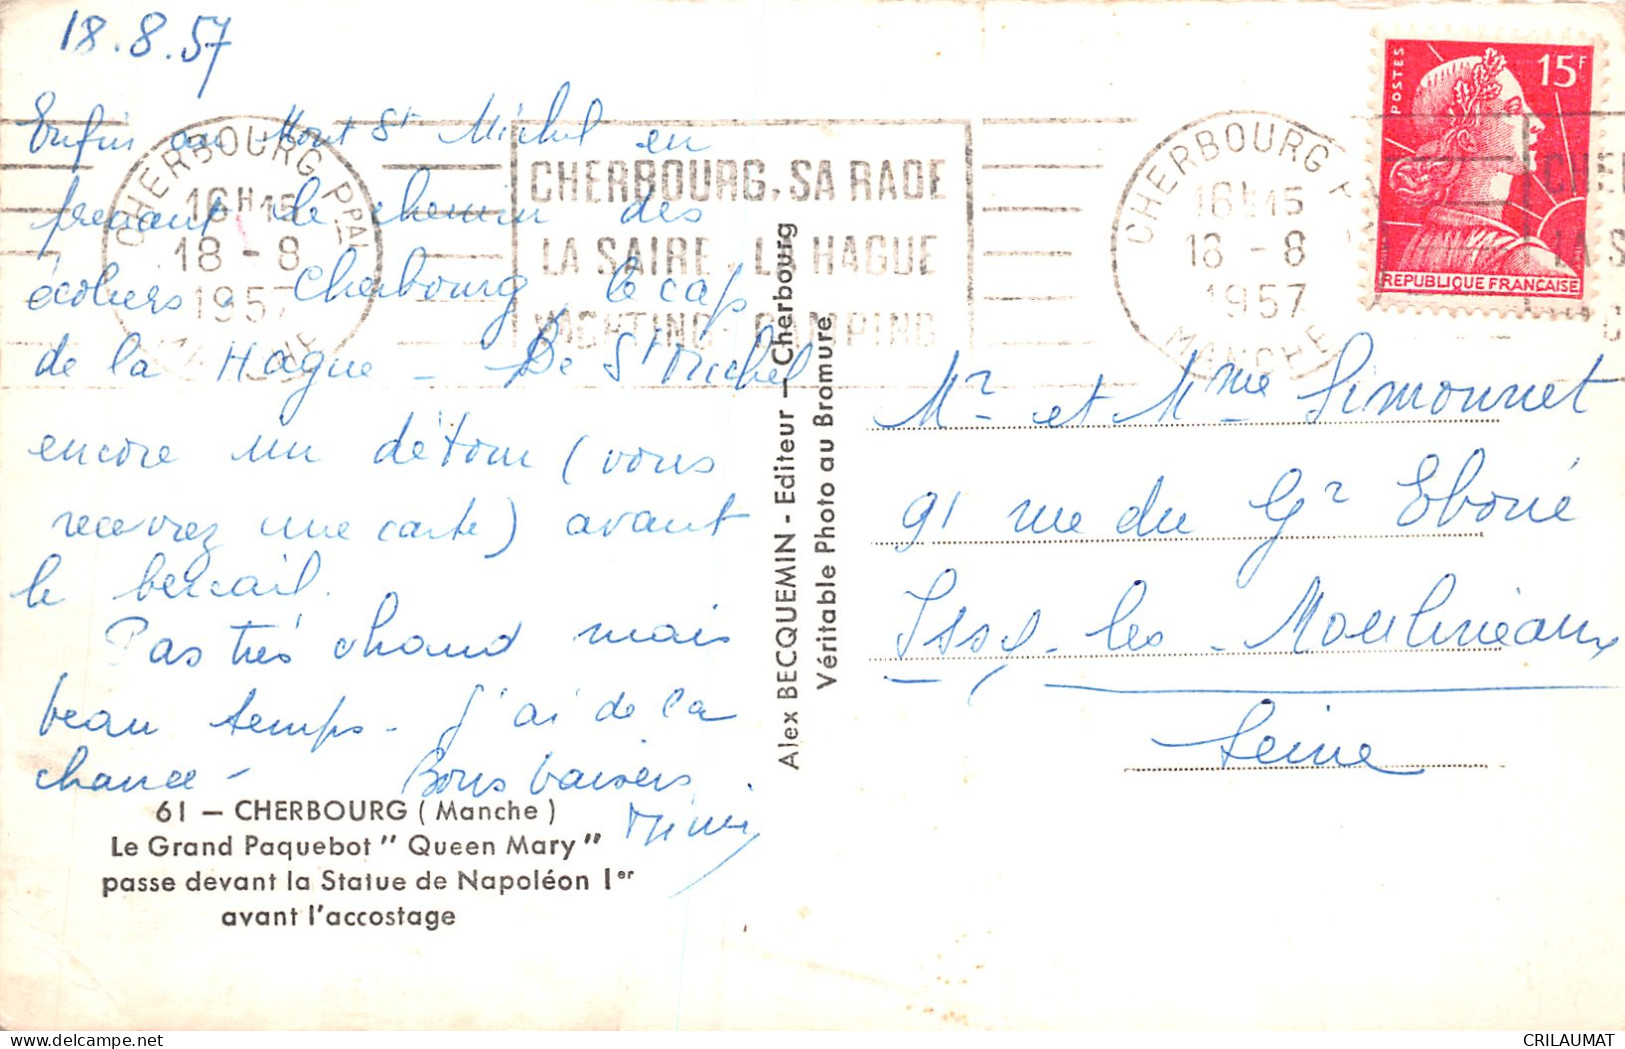 18.8.57
Enfin au Mont St Michel en
prenant le chemin des
écoliers. Cherbourg le cap
de la Hague - De St Michel
encore un détour (vous
recevrez une carte) avant
le bercail.
Pas très chaud mais
beau temps - J'ai de la
chance - Bons baisers
Mimi
61 — CHERBOURG ( Manche )
Le Grand Paquebot " Queen Mary "
passe devant la Statue de Napoléon Ier
avant l'accostage
CHERBOURG PPAL
16H15
18 - 8
1957
MANCHE
CHERBOURG, SA RADE
LA SAIRE - LA HAGUE
YACHTING - CAMPING
Alex BECQUEMIN - Editeur - Cherbourg
Véritable Photo au Bromure
CHERBOURG P
16H15
18 - 8
1957
MANCHE
CHE
LA S
POSTES
15F
REPUBLIQUE FRANCAISE
Mr et Mme Simonnet
91 rue du Gr Eboué
Issy-les-Moulineaux
Seine
CRILAUMAT